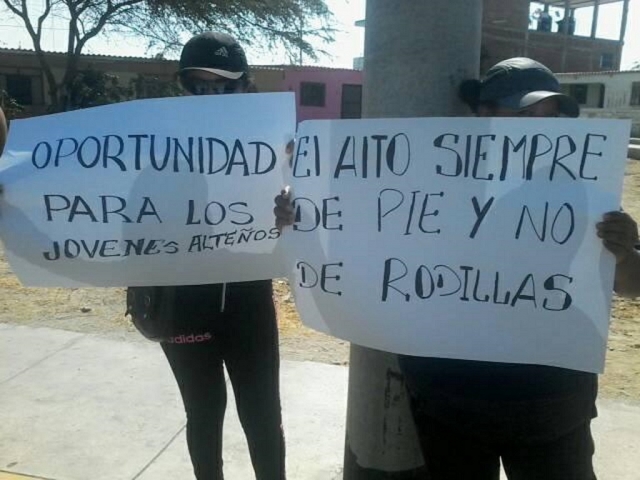 OPORTUNIDAD
PARA LOS
JOVENES ALTEÑOS
El AlTO SIEMPRE
DE PIE Y NO
DE RODILLAS
adidas